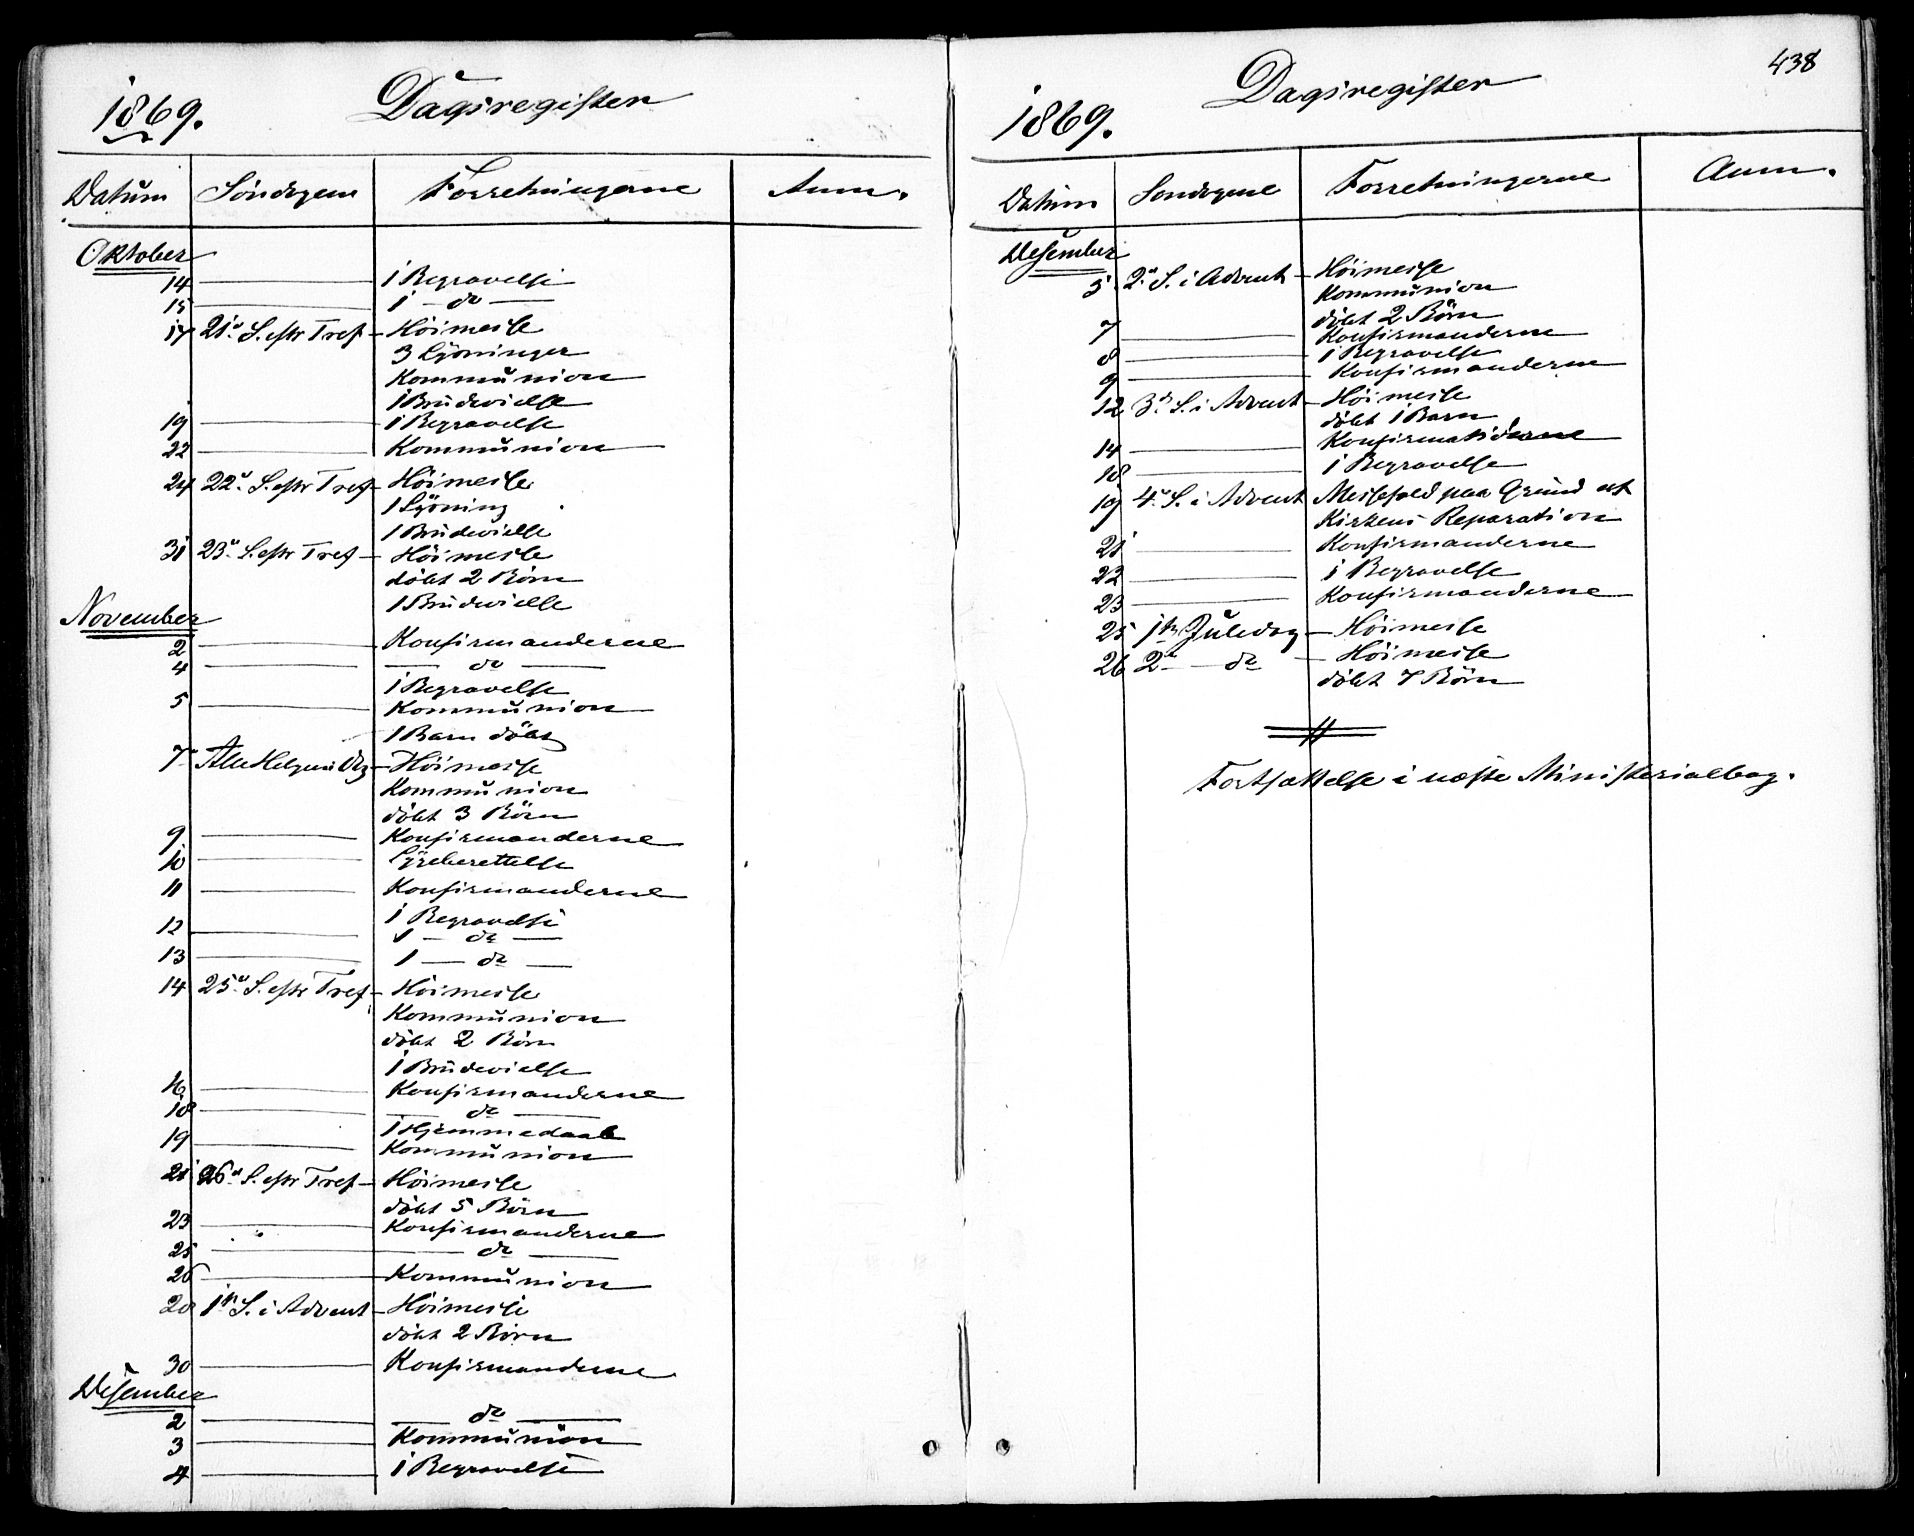 1869. Dagsregister
Datum Söndagene Forretningerne Anm.
Oktober
14 1 Begravelse
15 1 — do —
17 21de S. eftr Tref. Höimesse
3 Lysninger
Kommunion
1 Brudevielse
19 1 Begravelse
22 Kommunion
24 22de S. eftr Tref Höimesse
1 Lysning
1 Brudevielse
31 23de S. eftr Tref Höimesse
döbt 2 Börn
1 Brudevielse
November
2 Konfirmanderne
4 — do —
1 Begravelse
5 Kommunion
1 Barn döbt
7de Alle Helgens Dag Höimesse
Kommunion
döbt 3 Börn
9 Konfirmanderne
10 Sygeberettelse
11 Konfirmanderne
1 Begravelse
12 1 — do —
13 1 — do —
14 25de S. eftr Tref Höimesse
Kommunion
döbt 2 Börn
1 Brudevielse
16 Konfirmanderne
18 — do —
1 Hjemmedaab
19 Kommunion
21 26de S. eftr Tref Höimesse
döbt 5 Börn
23 Konfirmanderne
25 — do —
26 Kommunion
28 1ste S. i Advent Höimesse
döbt 2 Börn
30 Konfirmanderne
Desember
2 — do —
3 Kommunion
4 1 Begravelse
438
1869. Dagsregister
Datum Sondagene Forretningerne Anm.
Desember
5 2den S. i Advent Höimesse
Kommunion
döbt 2 Börn
7 Konfirmanderne
8 1 Begravelse
9 Konfirmanderne
12 3die S. i Advent Höimesse
döbt 1 Barn
14 Konfirmanderne
18 1 Begravelse
19 4de S. i Advent Messefald paa Grund af
Kirkens Reparation
21 Konfirmanderne
22 1 Begravelse
23 Konfirmanderne
25 1ste Juledag Höimesse
26 2den — do Höimesse
döbt 7 Börn
Fortsættelse i næste Ministerialbog.